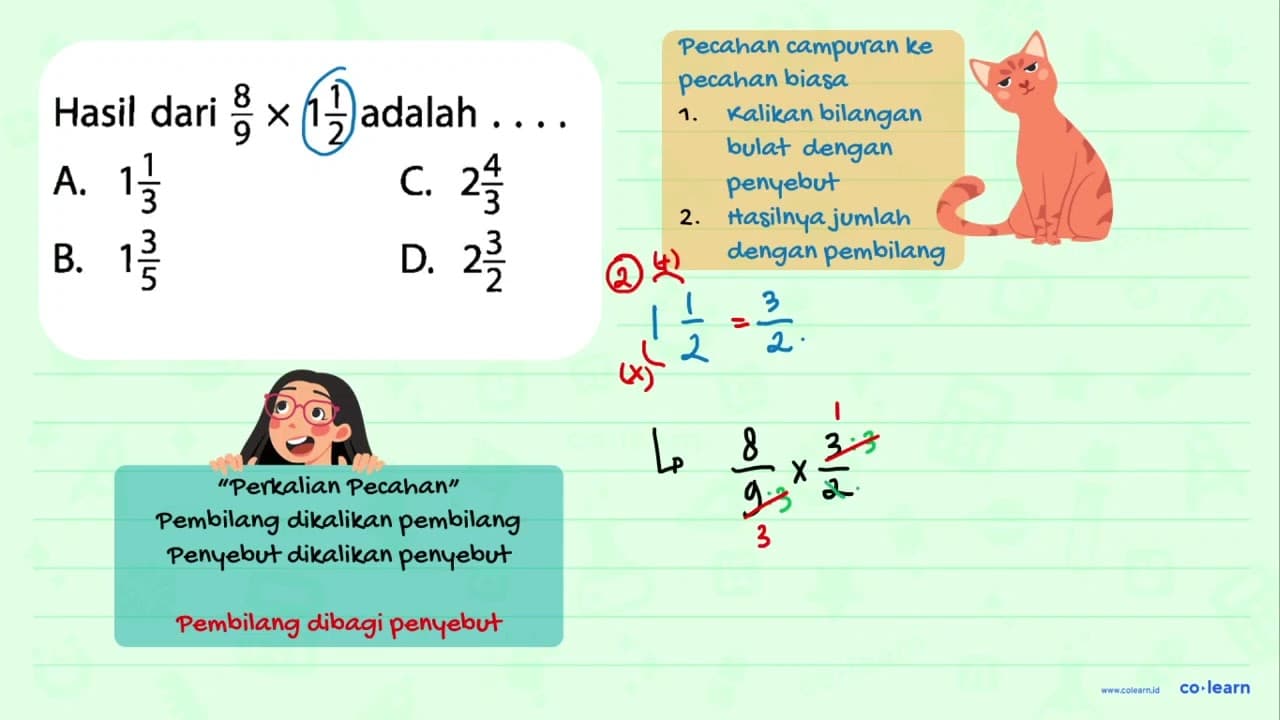 Hasil dari 8/9 × 1 1/2 adalah . . . .
A. 1 1/3
C. 2 4/3
B. 1 3/5
D. 2 3/2
Pecahan campuran ke
pecahan biasa
1. Kalikan bilangan
bulat dengan
penyebut
2. Hasilnya jumlah
dengan pembilang
2 (+)
1 1/2 = 3/2.
(x)
1
8/9 x 3/2
:3
:3
3
"Perkalian Pecahan"
Pembilang dikalikan pembilang
Penyebut dikalikan penyebut
Pembilang dibagi penyebut
www.colearn.id co·learn